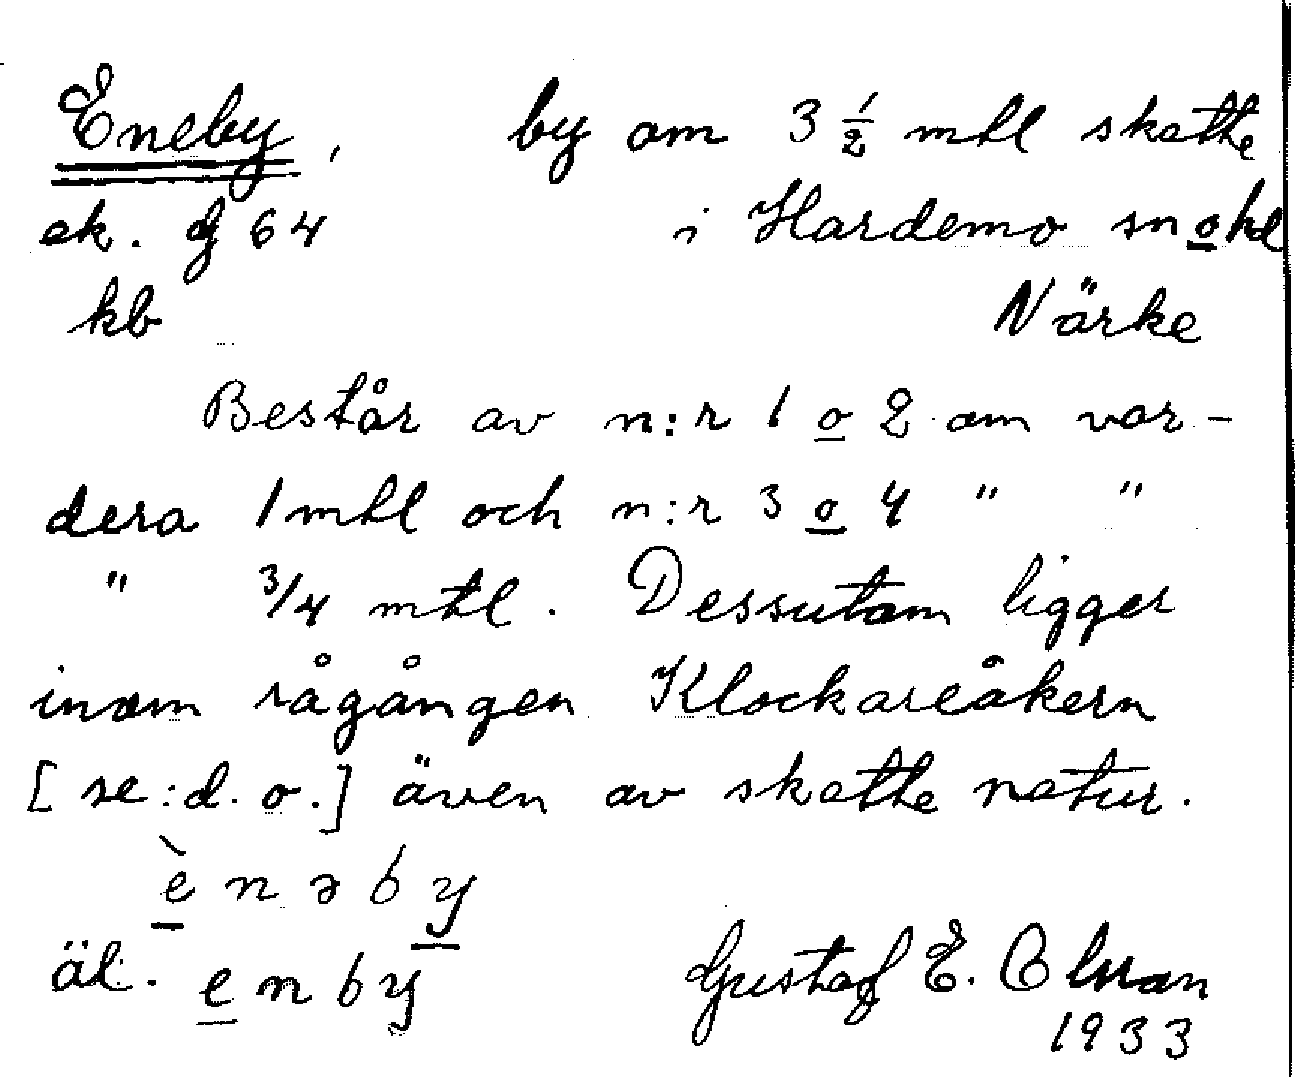 Eneby, by om 3 1/2 mtl skatte
ek. df 64 i Hardemo sn o hd
kb Närke
Består av n:r 1 o 2 om var-
dera 1 mtl och n:r 3 o 4 " "
" 3/4 mtl. Dessutom ligger
inom rågången Klockareåkern
[se: d. o.] även av skatte natur.
ènəby
äl. enby Gustaf E.
1933